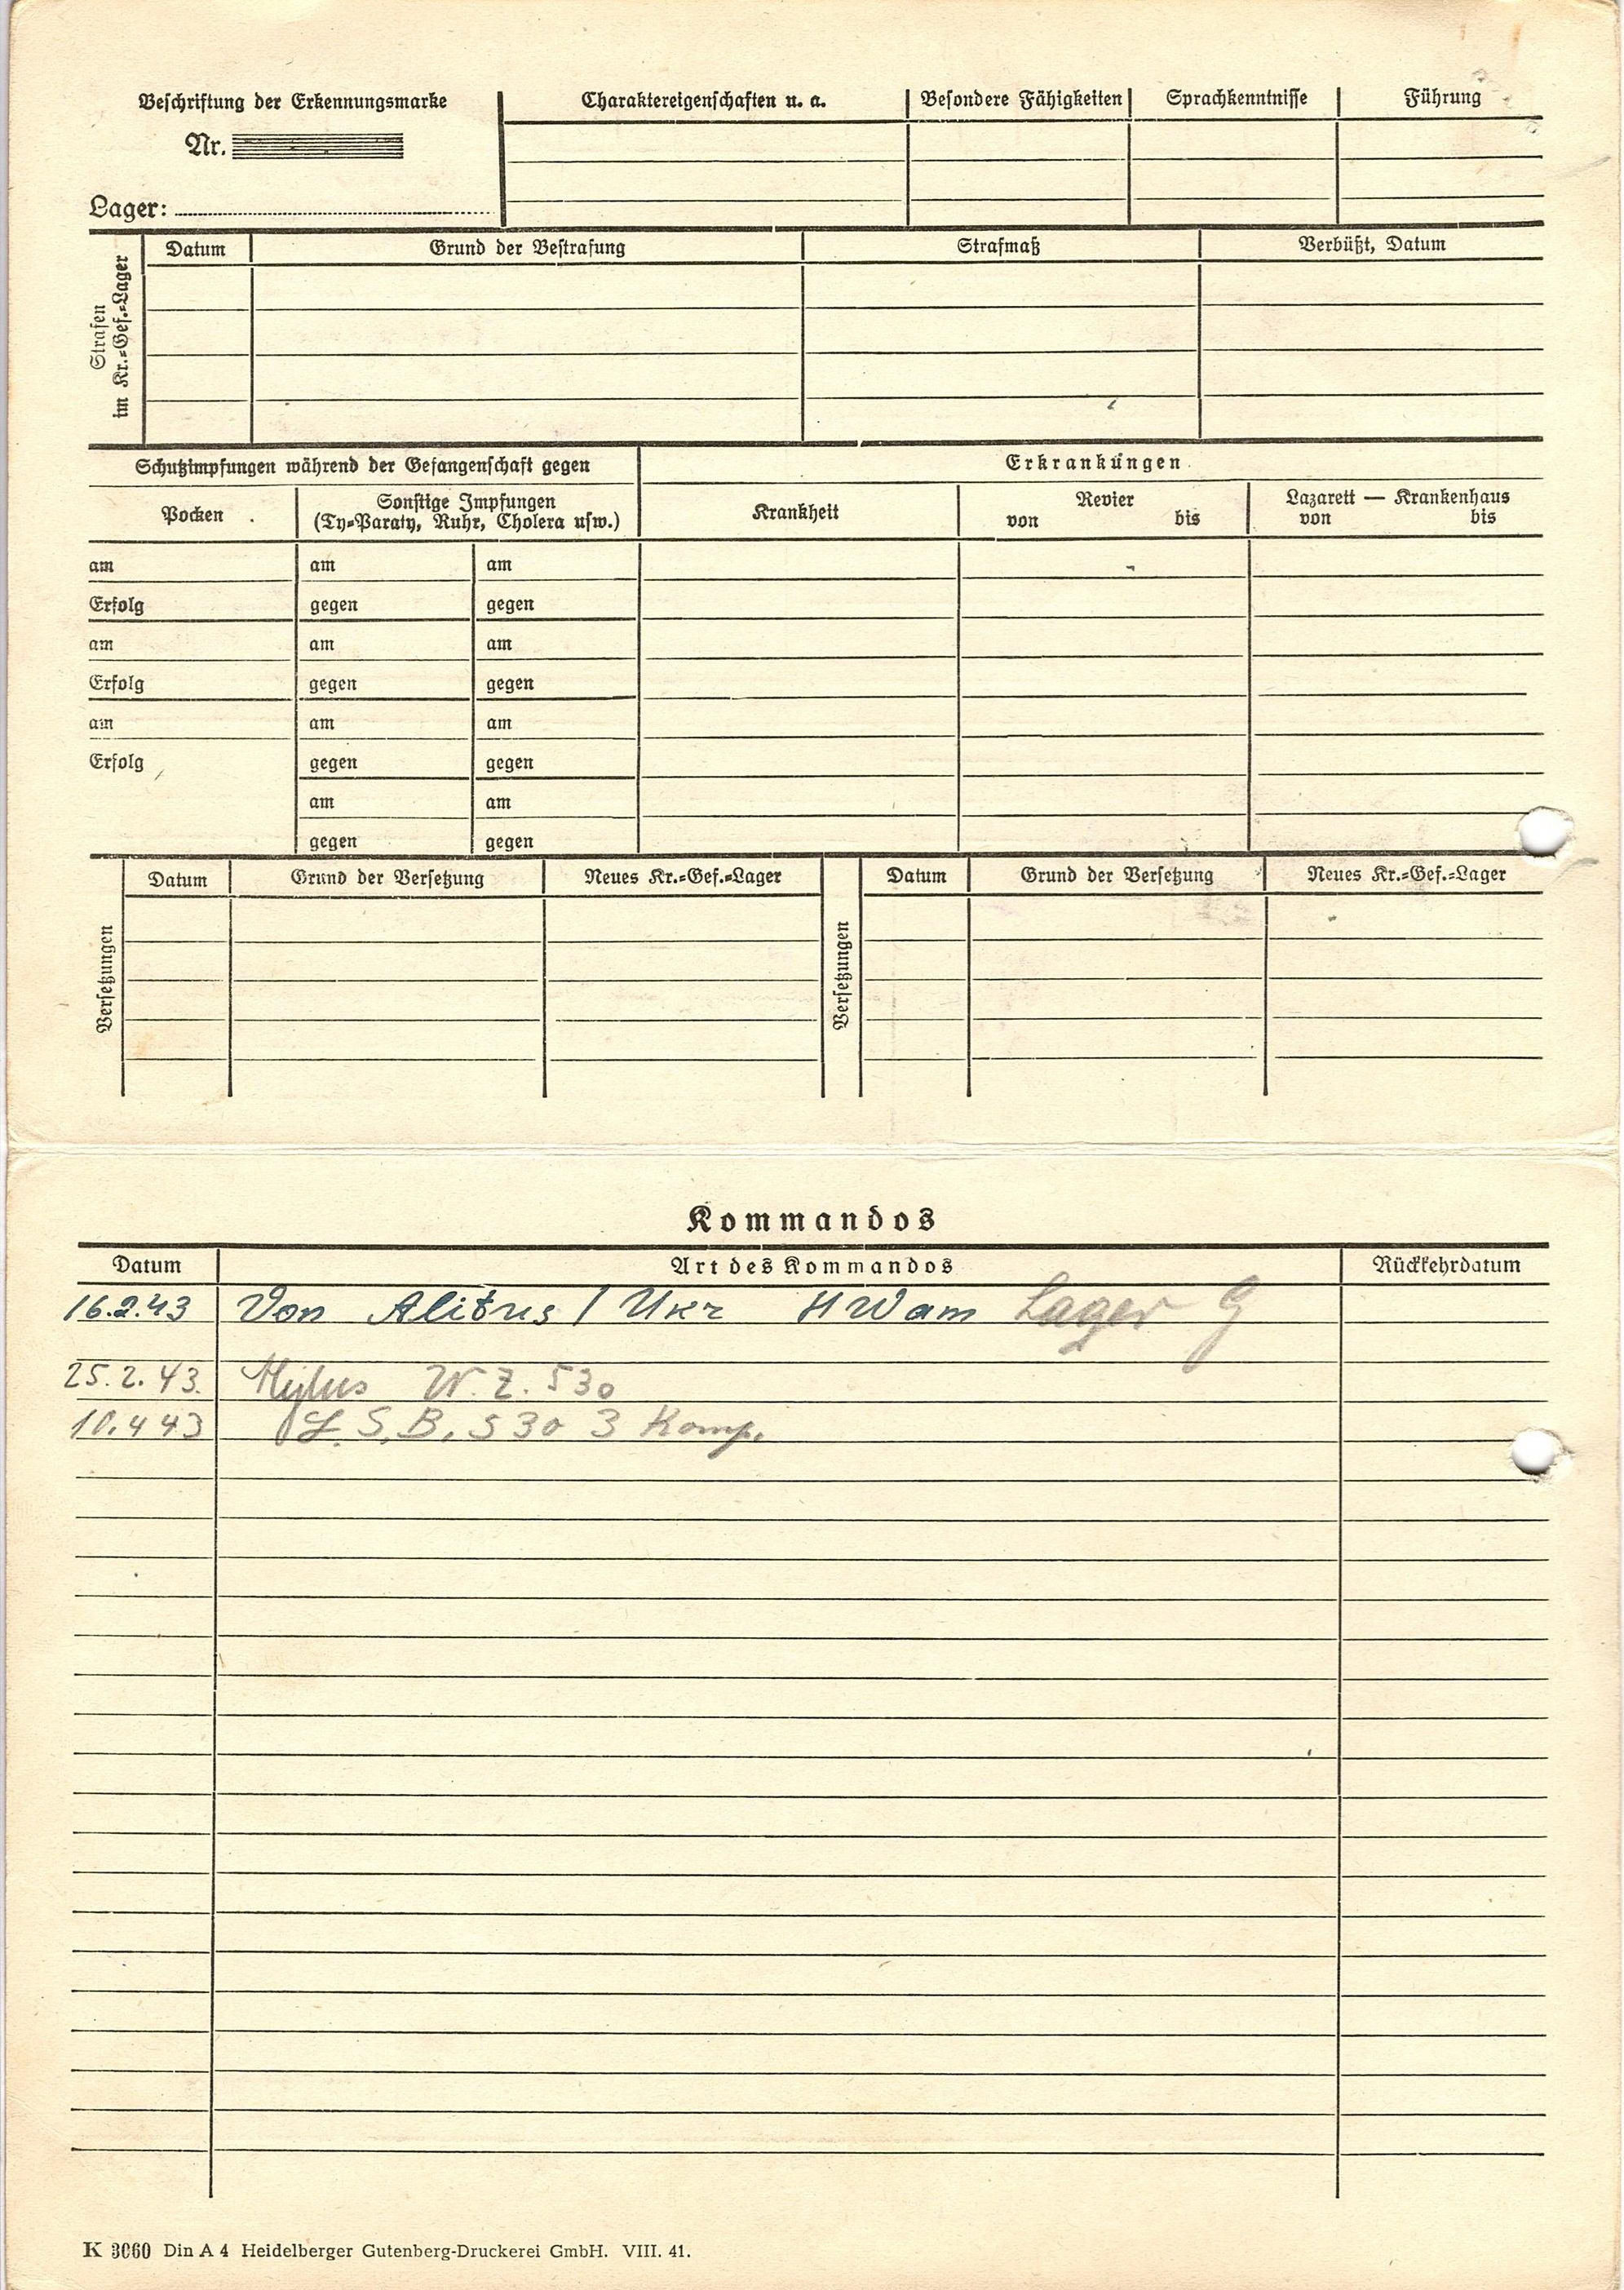 Beschriftung der Erkennungsmarke
Nr.
Lager:
Charaktereigenschaften u. a.
Besondere Fähigkeiten
Sprachkenntnisse
Führung
Strafen
im Kr.=Gef.=Lager
Datum
Grund der Bestrafung
Strafmaß
Verbüßt, Datum
Schutzimpfungen während der Gefangenschaft gegen
Erkrankungen
Pocken
Sonstige Impfungen
(Ty=Paraty, Ruhr, Cholera usw.)
Krankheit
Revier
von bis
Lazarett — Krankenhaus
von bis
am am am
Erfolg gegen gegen
am am am
Erfolg gegen gegen
am am am
Erfolg gegen gegen
am am
gegen gegen
Versetzungen
Datum
Grund der Versetzung
Neues Kr.=Gef.=Lager
Versetzungen
Datum
Grund der Versetzung
Neues Kr.=Gef.=Lager
Kommandos
Datum Art des Kommandos Rückkehrdatum
16.2.43 Von Alitus / Ukr Lager G
25.2.43. W. Z. 530
10.4 43 L. S. B. 530 3 Komp.
K 3060 Din A 4 Heidelberger Gutenberg-Druckerei GmbH. VIII. 41.